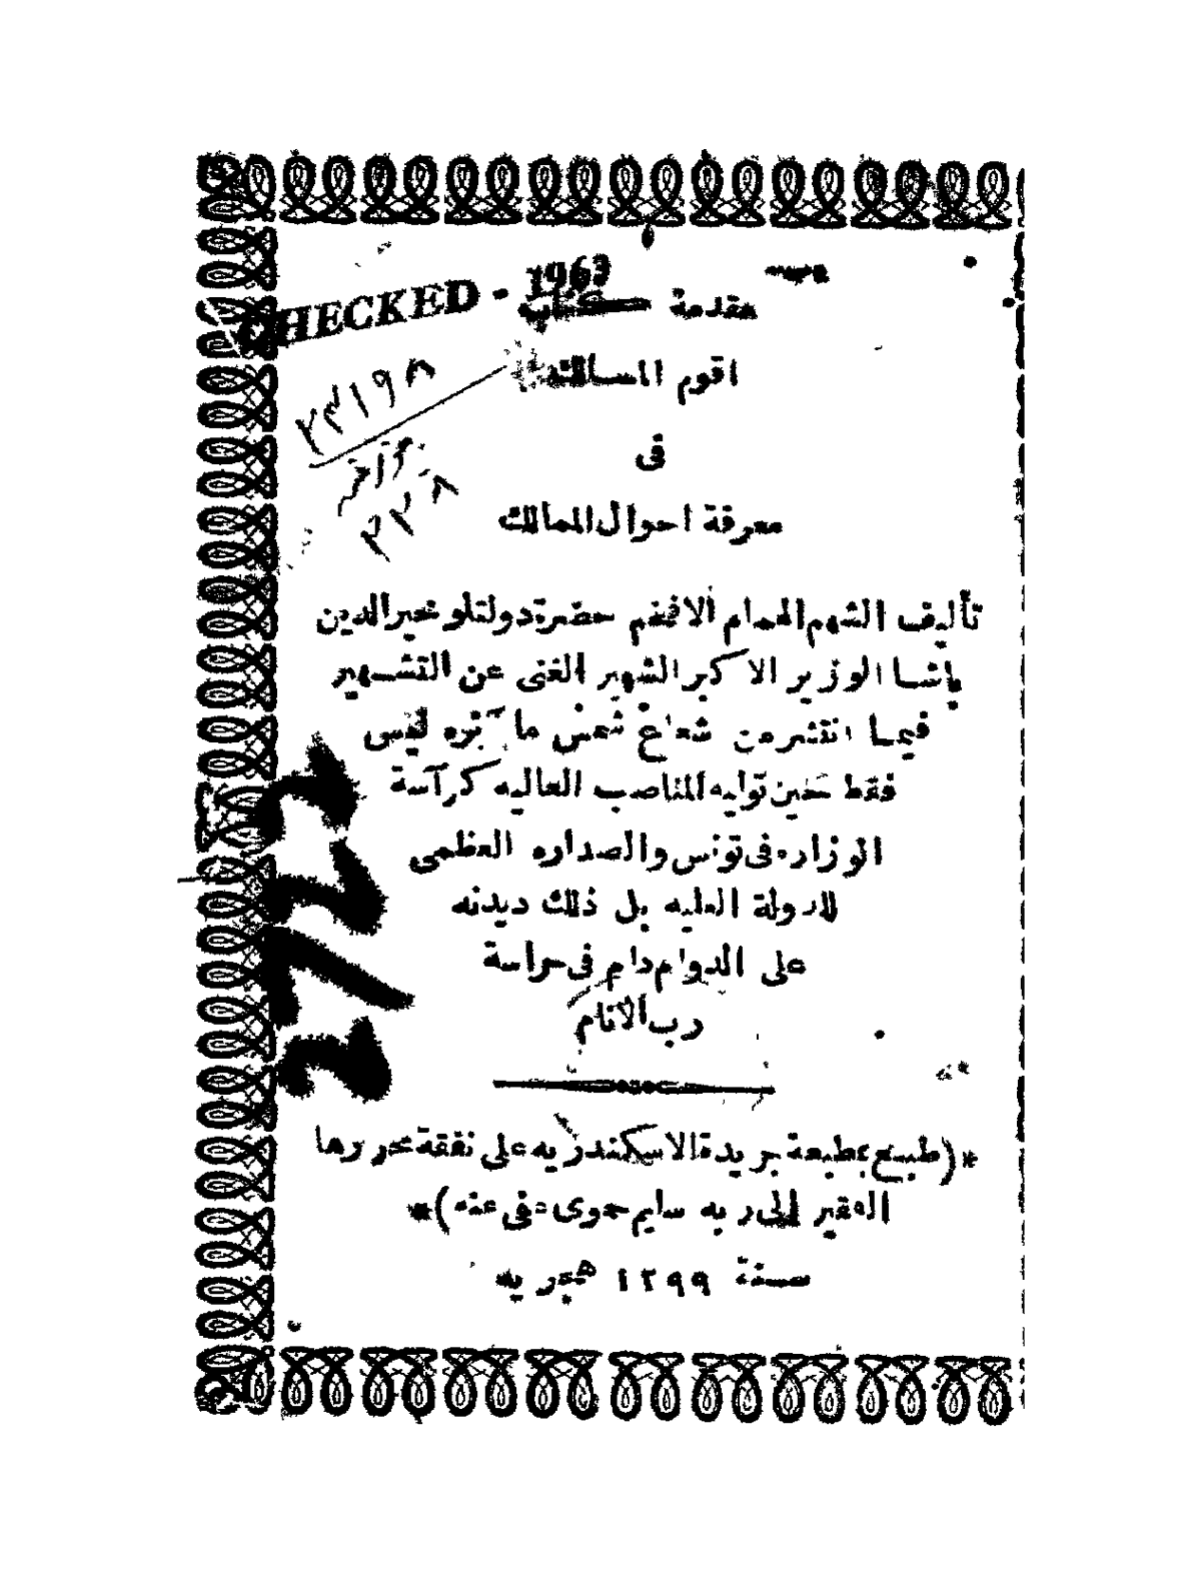 CHECKED - 1963
مقدمة كتاب
اقوم المسالك
فى
معرفة احوال الممالك
٢٣١٩٨
٢٢٨
تأليف الشهم الهمام الافخم حضرة دولتلو خير الدين
باشا الوزير الاكبر الشهير الغنى عن التشهير
فيما انتشر من شعاع شمس مآثره ليس
فقط حين توليه المناصب العاليه كرآسة
الوزاره فى تونس والصداره العظمى
للدولة العليه بل ذلك ديدنه
على الدوام دام فى حراسة
رب الانام
*(طبع بمطبعة جريدة الاسكندريه على نفقة محررها
الفقير الى ربه سليم حموى عفى عنه)*
سنة ١٢٩٩ هجريه